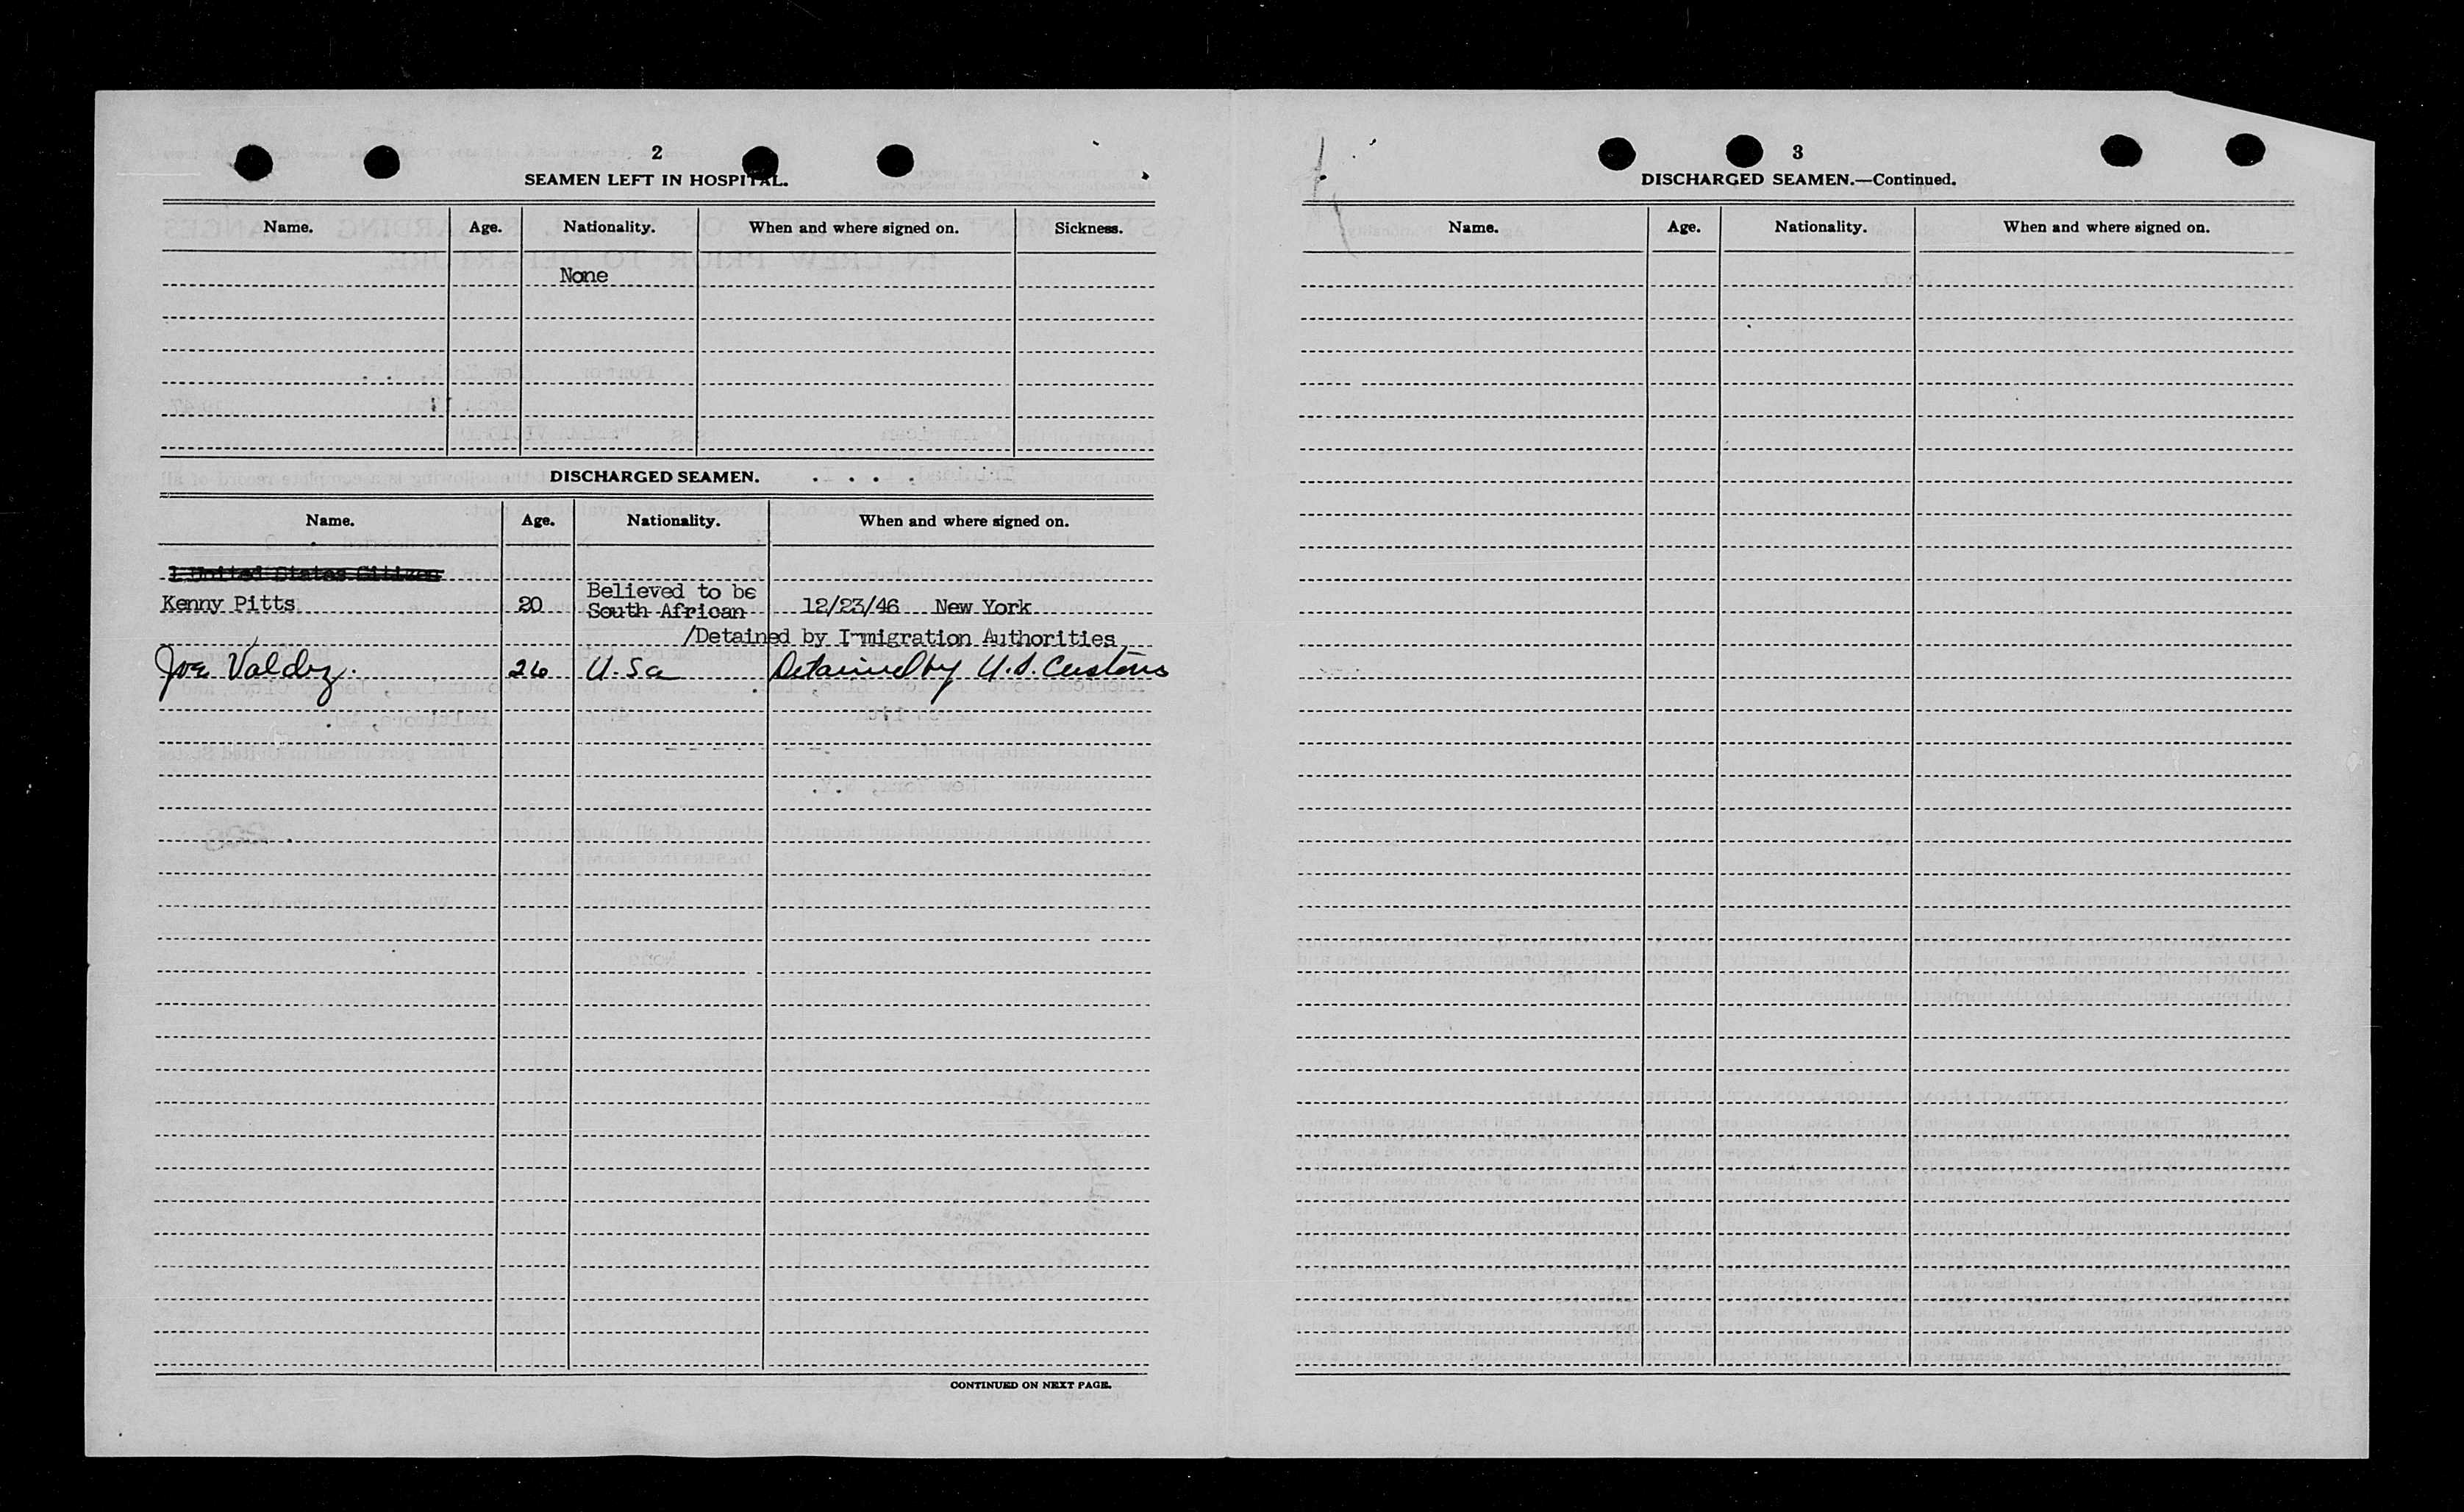 2
SEAMEN LEFT IN HOSPITAL.
Name. Age. Nationality. When and where signed on. Sickness.
None
DISCHARGED SEAMEN.
Name. Age. Nationality. When and where signed on.
1 United States Citizen
Believed to be
Kenny Pitts 20 South African 12/23/46 New York
/Detained by Immigration Authorities
Joe Valdez. 26 U.Sa Detained by U.S. Customs
CONTINUED ON NEXT PAGE.
3
DISCHARGED SEAMEN.—Continued.
Name. Age. Nationality. When and where signed on.